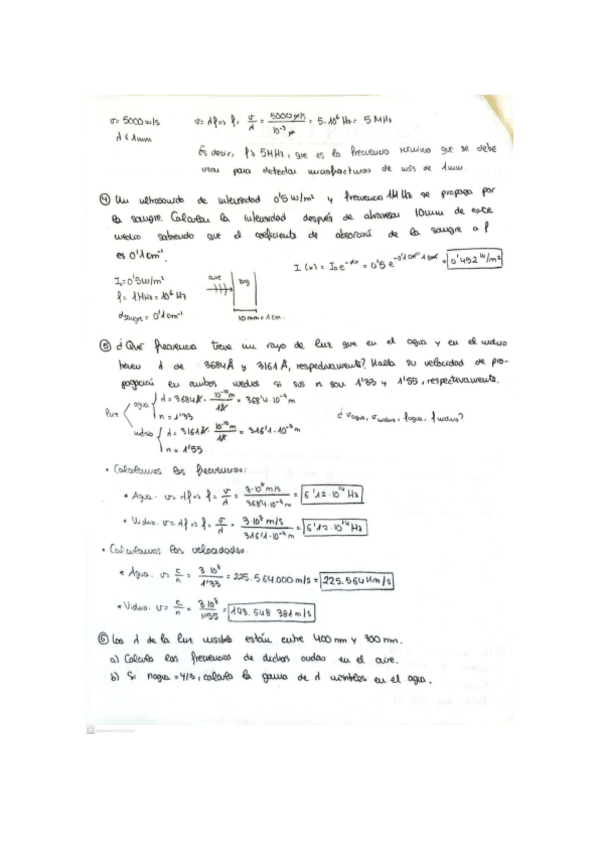 v= 5000 m/s v= λf => f= v/λ = 5000 m/s / 10⁻³ m = 5·10⁶ Hz = 5 MHz
λ ≤ 1mm
Es decir, f ≥ 5MHz, que es la frecuencia mínima que se debe
usar para detectar microfracturas de más de 1mm.
④ Un ultrasonido de intensidad 0'5 W/m² y frecuencia 1MHz se propaga por
la sangre. Calcular la intensidad después de atravesar 10mm de este
medio sabiendo que el coeficiente de absorción de la sangre a f
es 0'1 cm⁻¹.
I(x) = I₀e^-αx = 0'5 e^-0'1cm⁻¹·1cm = 0'452 W/m²
I₀=0'5W/m²
f= 1MHz=10⁶ Hz
αsangre = 0'1cm⁻¹
aire
sng
10mm=1cm.
⑤ ¿Qué frecuencia tiene un rayo de luz que en el agua y en el vidrio
tienen λ de 3684Å y 3161Å, respectivamente? Halla su velocidad de pro-
pagación en ambos medios si sus n son 1'33 y 1'55, respectivamente.
luz
agua λ= 3684Å · 10⁻¹⁰m / 1Å = 368'4·10⁻⁹m
n= 1'33
vidrio λ= 3161Å · 10⁻¹⁰m / 1Å = 316'1·10⁻⁹m
n= 1'55
¿ vagua, vvidrio, fagua, fvidrio?
• Calculamos las frecuencias:
* Agua. v= λf => f= v/λ = 3·10⁸ m/s / 368'4·10⁻⁹m = 6'12·10¹⁴ Hz
* Vidrio. v= λf => f= v/λ = 3·10⁸ m/s / 316'1·10⁻⁹m = 6'12·10¹⁴ Hz
• Calculamos las velocidades.
* Agua. v= c/n = 3·10⁸ / 1'33 = 225.564.000 m/s = 225.564 Km/s
* Vidrio. v= c/n = 3·10⁸ / 1'55 = 193.548.387 m/s
⑥ Los λ de la luz visible están entre 400nm y 700nm.
a) Calcula las frecuencias de dichas ondas en el aire.
b) Si nagua=4/3, calcula la gama de λ visibles en el agua.